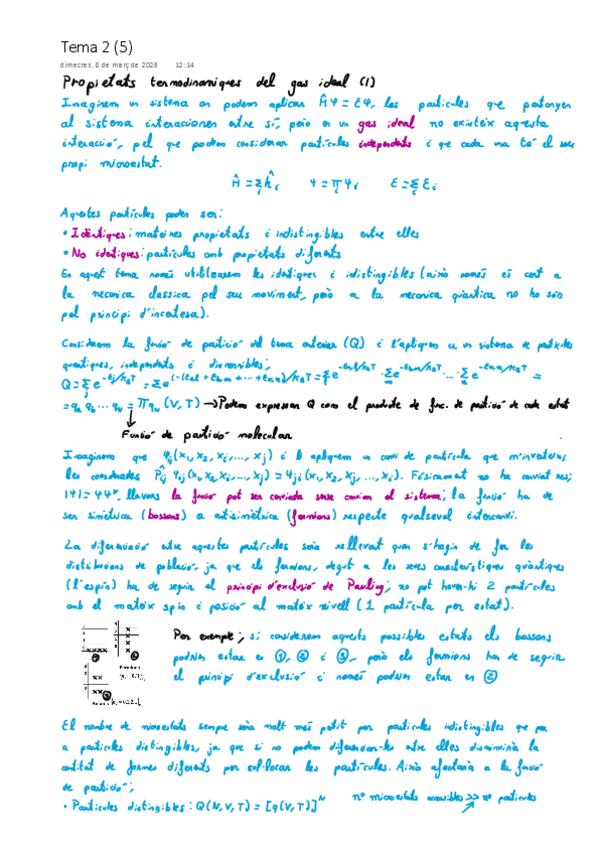 Tema 2 (5)
dimecres, 8 de març de 2023 12:14
Propietats termodinàmiques del gas ideal (1)
Imaginem un sistema on podem aplicar ĤΨ = EΨ, les partícules que pertanyen
al sistema interaccionen entre sí, però en un gas ideal no existeix aquesta
interacció, pel que podem considerar partícules independents i que cada una té el seu
propi microestat.
Ĥ = Σ ĥi Ψ = π Ψi E = Σ Ei
Aquestes partícules poden ser:
• Idèntiques: mateixes propietats i indistingibles entre elles
• No idèntiques: partícules amb propietats diferents
En aquest tema només utilitzarem les idèntiques i indistingibles (això només és cert a
la mecànica clàssica pel seu moviment, però a la mecànica quàntica no ho són
pel principi d'incertesa).
Considerem la funció de partició del tema anterior (Q) i l'apliquem en un sistema de partícules
quàntiques, independents i discernibles;
= qa qb ... qN = π qN (V, T) → Podem expressar Q com el producte de func. de partició de cada estat
Funció de partició molecular
Imaginem que Ψj(x1, x2, xi, ..., xj) i li apliquem un canvi de partícula que n'inverteixi
les coordenades P̂ij Ψij(x1, x2, xi, ..., xj) = Ψji (x1, x2, xj, ..., xi). Físicament no ha canviat res;
|Ψ| = ΨΨ*, llavors la funció pot ser canviada sense canviar el sistema; la funció ha de
ser simètrica (bosons) o antisimètrica (fermions) respecte qualsevol intercanvi.
La diferenciació entre aquestes partícules serà rellevant quan s'hagin de fer les
distribucions de població, ja que els fermions, degut a les seves característiques quàntiques
(l'espín) ha de seguir el principi d'exclusió de Pauling; no pot haver-hi 2 partícules
amb el mateix spin i posició al mateix nivell (1 partícula per estat).
Per exemple; si considerem aquests possibles estats els bosons
podrien estar en ①, ② i ③, però els fermions han de seguir
el principi d'exclusió i només podrien estar en ②
El nombre de microestats sempre serà molt més petit per partícules indistingibles que per
a partícules distingibles, ja que si no podem diferenciar-les entre elles disminuirà la
quantitat de formes diferents per col·locar les partícules. Això afectarà a la funció
de partició;
• Partícules distingibles: Q(N,V,T) = [q(V,T)]^N nº microestats accessibles >> nº partícules